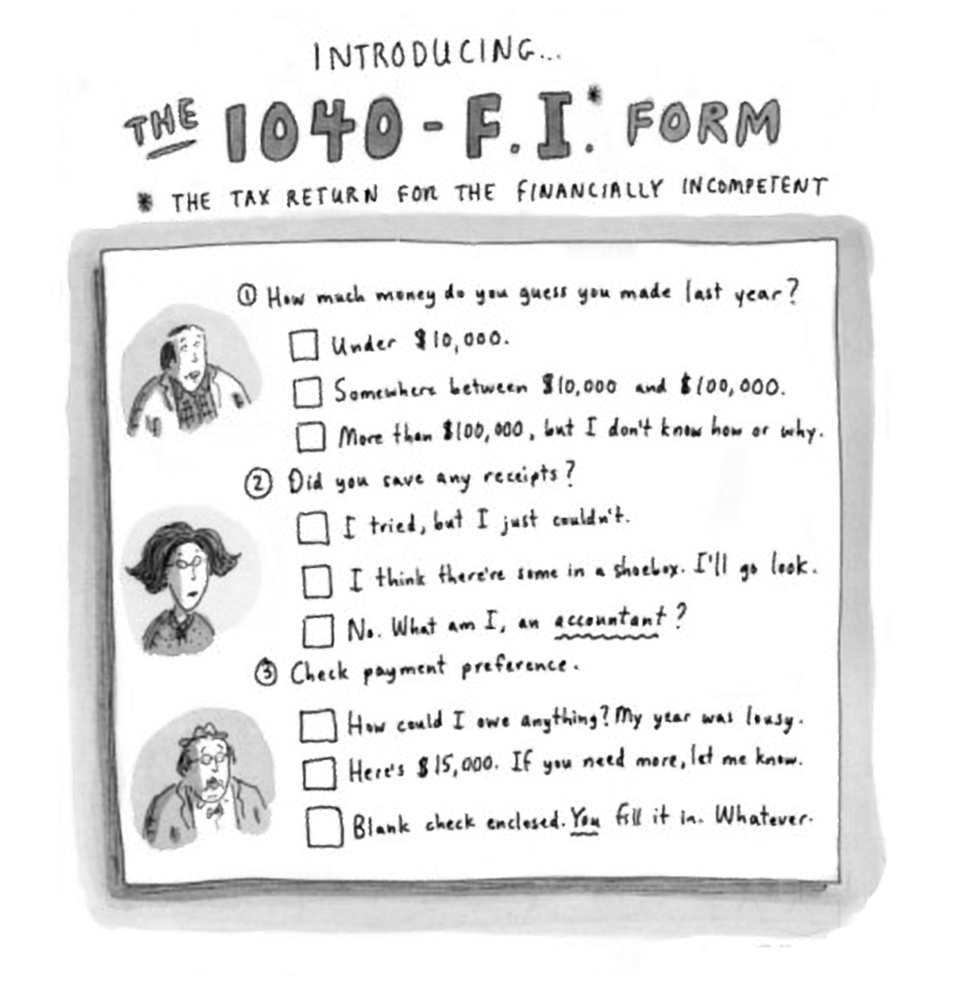 INTRODUCING...
THE 1040-F.I.* FORM
* THE TAX RETURN FOR THE FINANCIALLY INCOMPETENT
① How much money do you guess you made last year?
Under $10,000.
Somewhere between $10,000 and $100,000.
More than $100,000, but I don't know how or why.
② Did you save any receipts?
I tried, but I just couldn't.
I think there're some in a shoebox. I'll go look.
No. What am I, an accountant?
③ Check payment preference.
How could I owe anything? My year was lousy.
Here's $15,000. If you need more, let me know.
Blank check enclosed. You fill it in. Whatever.